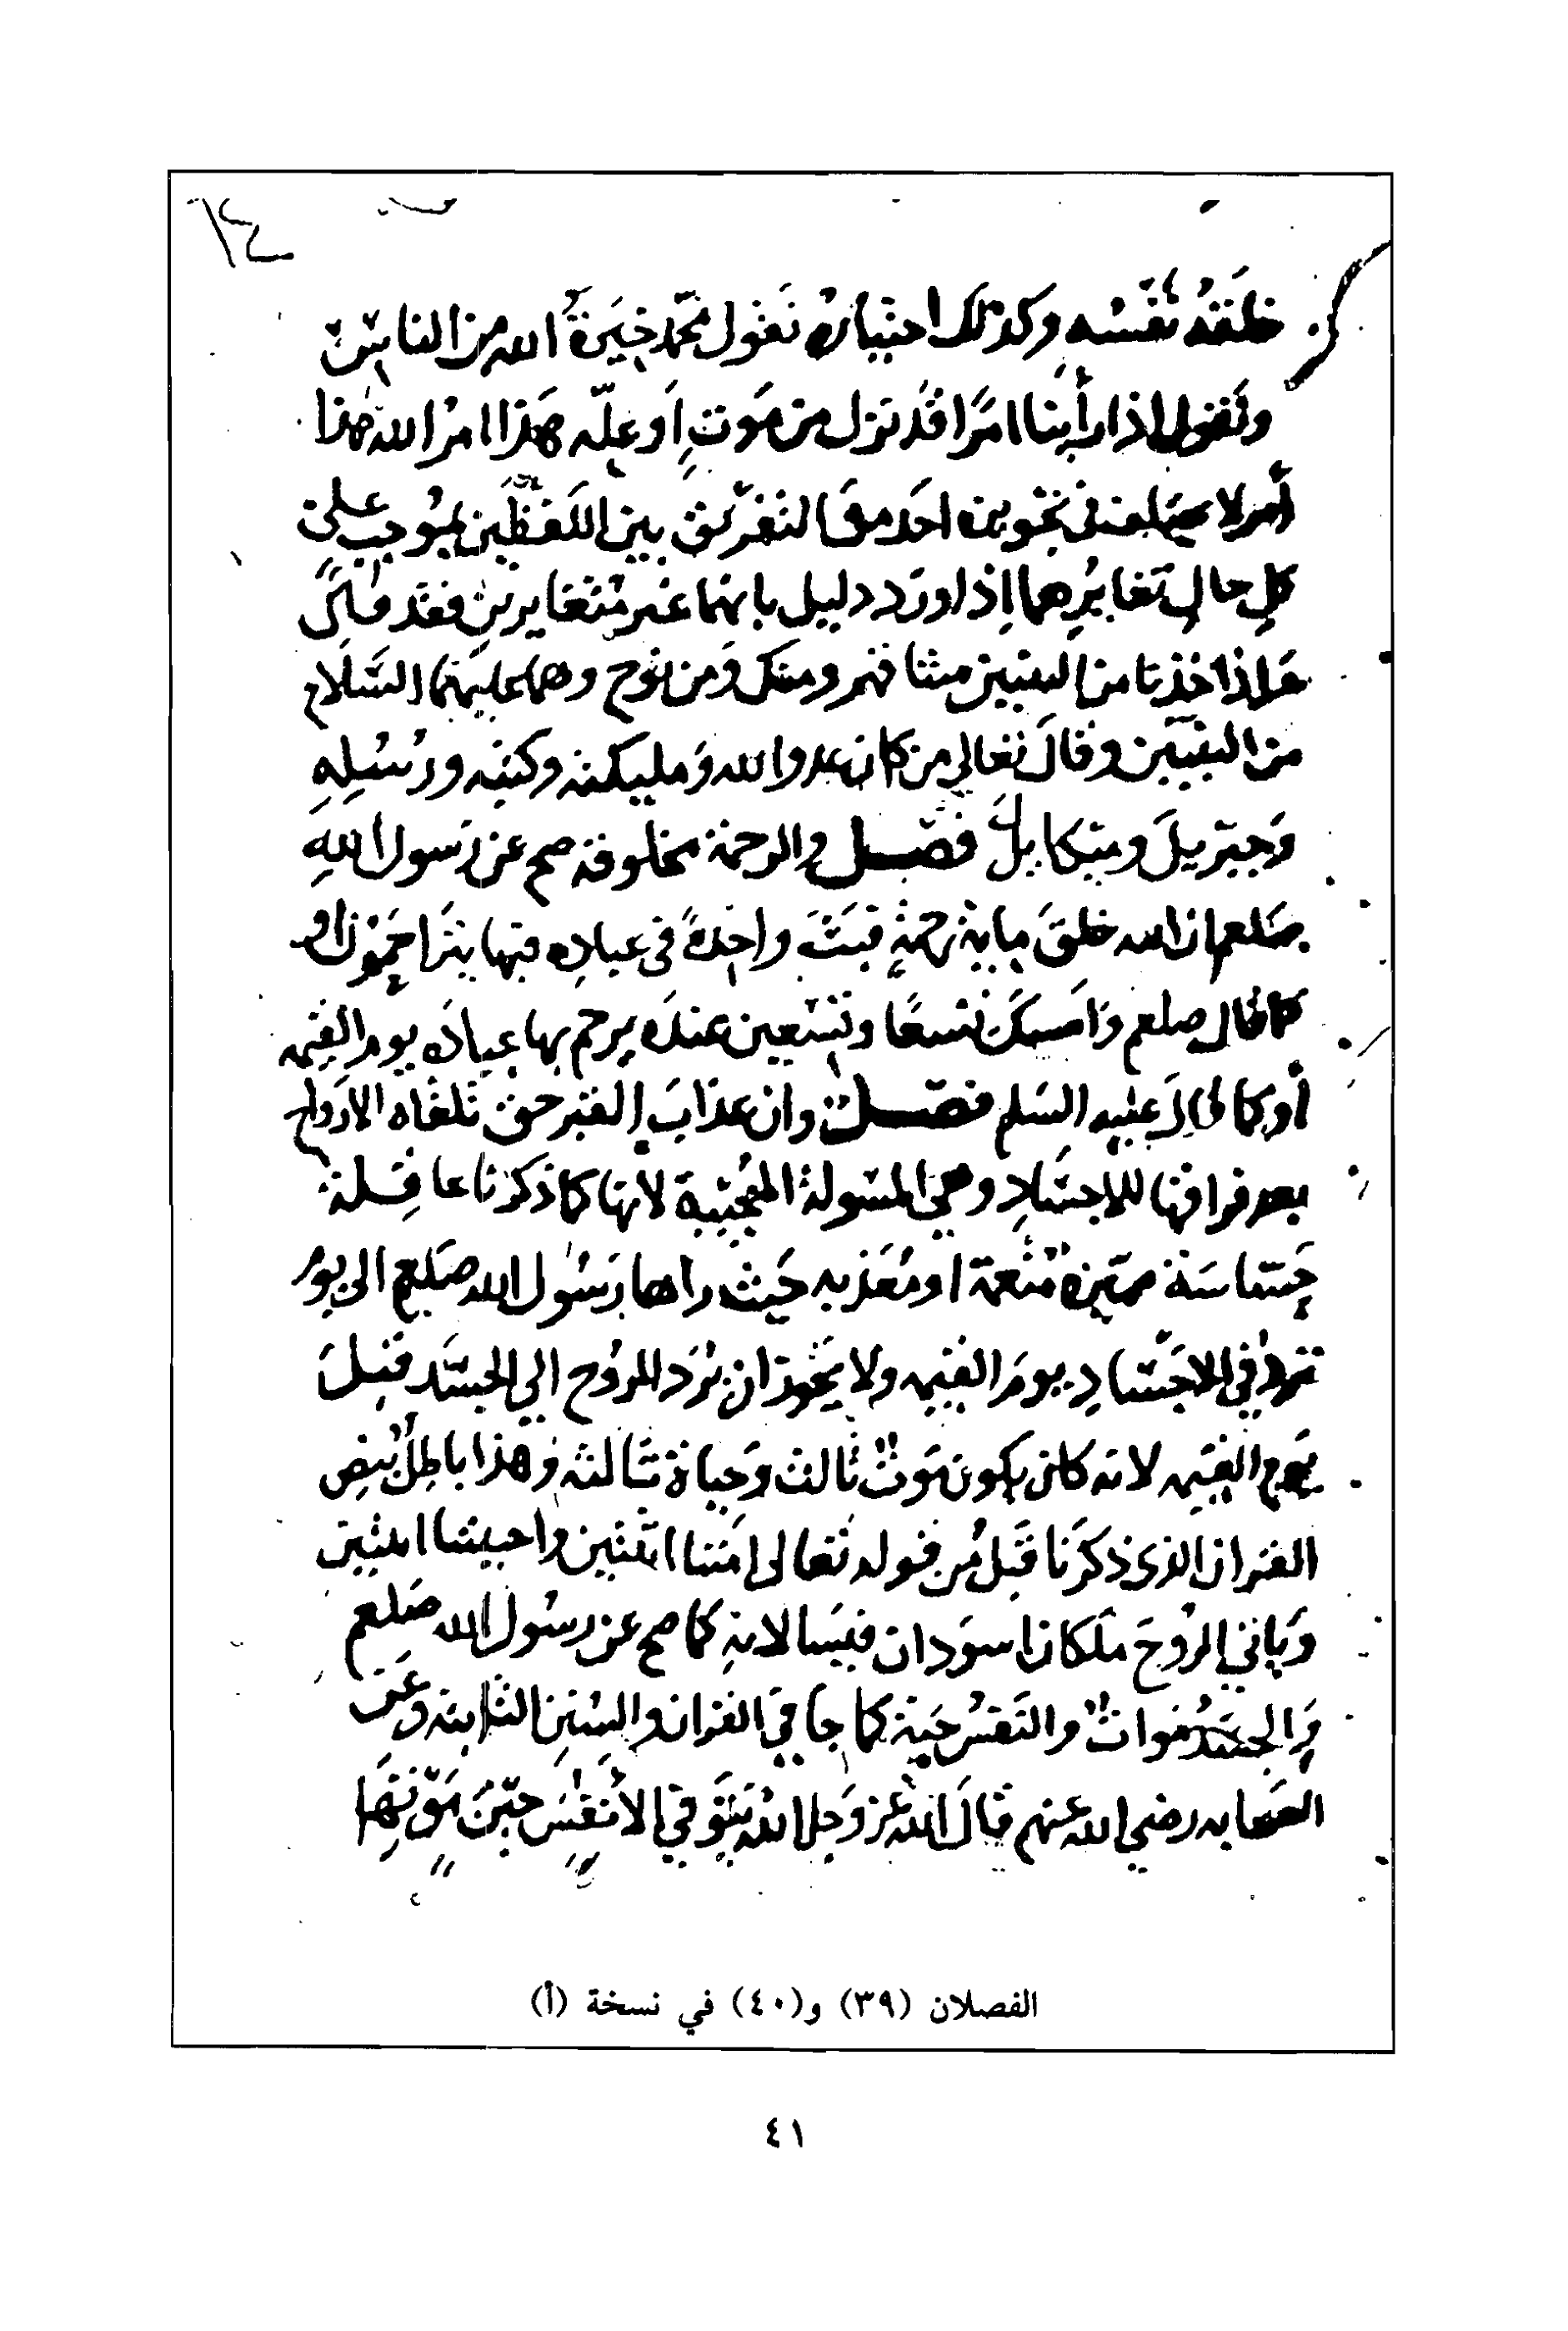 خلقه نفسه وكذلك اختياره نقول محمد خيرة الله من الناس
ونقول اذا راينا امرا قد نزل من موت او علة هذا امر الله هذا
أمر لا في تجويز احد التفريق بين اللفظين بموجب على
كل حال تغايرهما إذا ورد دليل بانهما غير متغايرين فقد قال
واذ اخذنا من النبيين ميثاقهم ومنك ومن نوح وهما عليهما السلام
من النبيين وقال تعالى من كان عدوا لله ومليكته وكتبه ورسله
وجبريل وميكايل فصل والرحمة مخلوقة صح عن رسول الله
صلعم ان الله خلق ماية رحمة فبث واحدة في عباده فبها يتراحمون او
كما قال صلعم وامسك تسعا وتسعين عنده يرحم بها عباده يوم القيمه
أو كما قال عليه السلم فصل وان عذاب القبر حق تلقاه الارواح
بعد فراقها للاجساد وهي المسولة المجيبة لانها كما ذكرنا عاقلة
حساسة مميزة منعمة او معذبه حيث راها رسول الله صلعم الى يوم
ترد في الاجساد يوم القيمه ولا يجوز ان ترد الروح الي الجسد قبل
يوم القيمه لانه كان يكون موت ثالث وحياة ثالثه وهذا باطل بنص
القران الذي ذكرنا قبل من قوله تعالى امتنا اثنتين واحييتنا اثنتين
وياتي الروح ملكان اسودان فيسالانه كما صح عن رسول الله صلعم
والجسد موات والنفس حية كما جا في القران والسنن الثابته وعن
الصحابه رضي الله عنهم قال الله عز وجل الله يتوفى الأنفس حين موتها
الفصلان (٣٩) و(٤٠) في نسخة (أ)
٤١